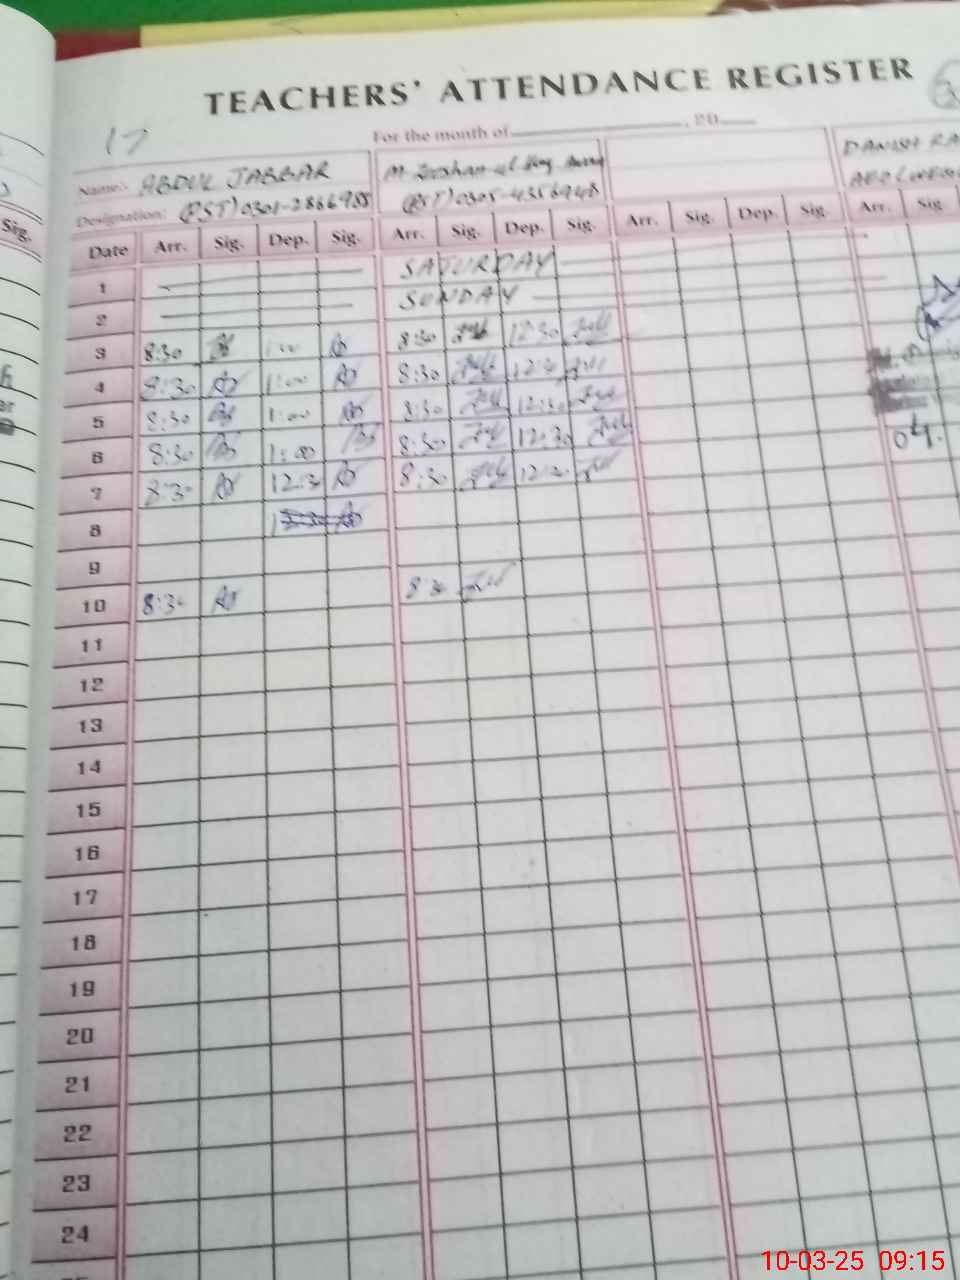 TEACHERS' ATTENDANCE REGISTER
17
For the month of , 20
Name:- ABDUL JABBAR
DANISH RA
Designation: (PST) 0301-2866988 (PST) 0305-4356948
Sig.
Date Arr. Sig. Dep. Sig. Arr. Sig. Dep. Sig. Arr. Sig. Dep. Sig. Arr. Sig
1 SATURDAY
2 SUNDAY
3 8:30 1:00 8:30 12:30
4 8:30 1:00 8:30 12:30
5 8:30 1:00 8:30 12:30
6 8:30 1:00 8:30 12:30
04.
7 8:30 12:30 8:30 12:30
8
9
10 8:30 8:30
11
12
13
14
15
16
17
18
19
20
21
22
23
24
10-03-25 09:15